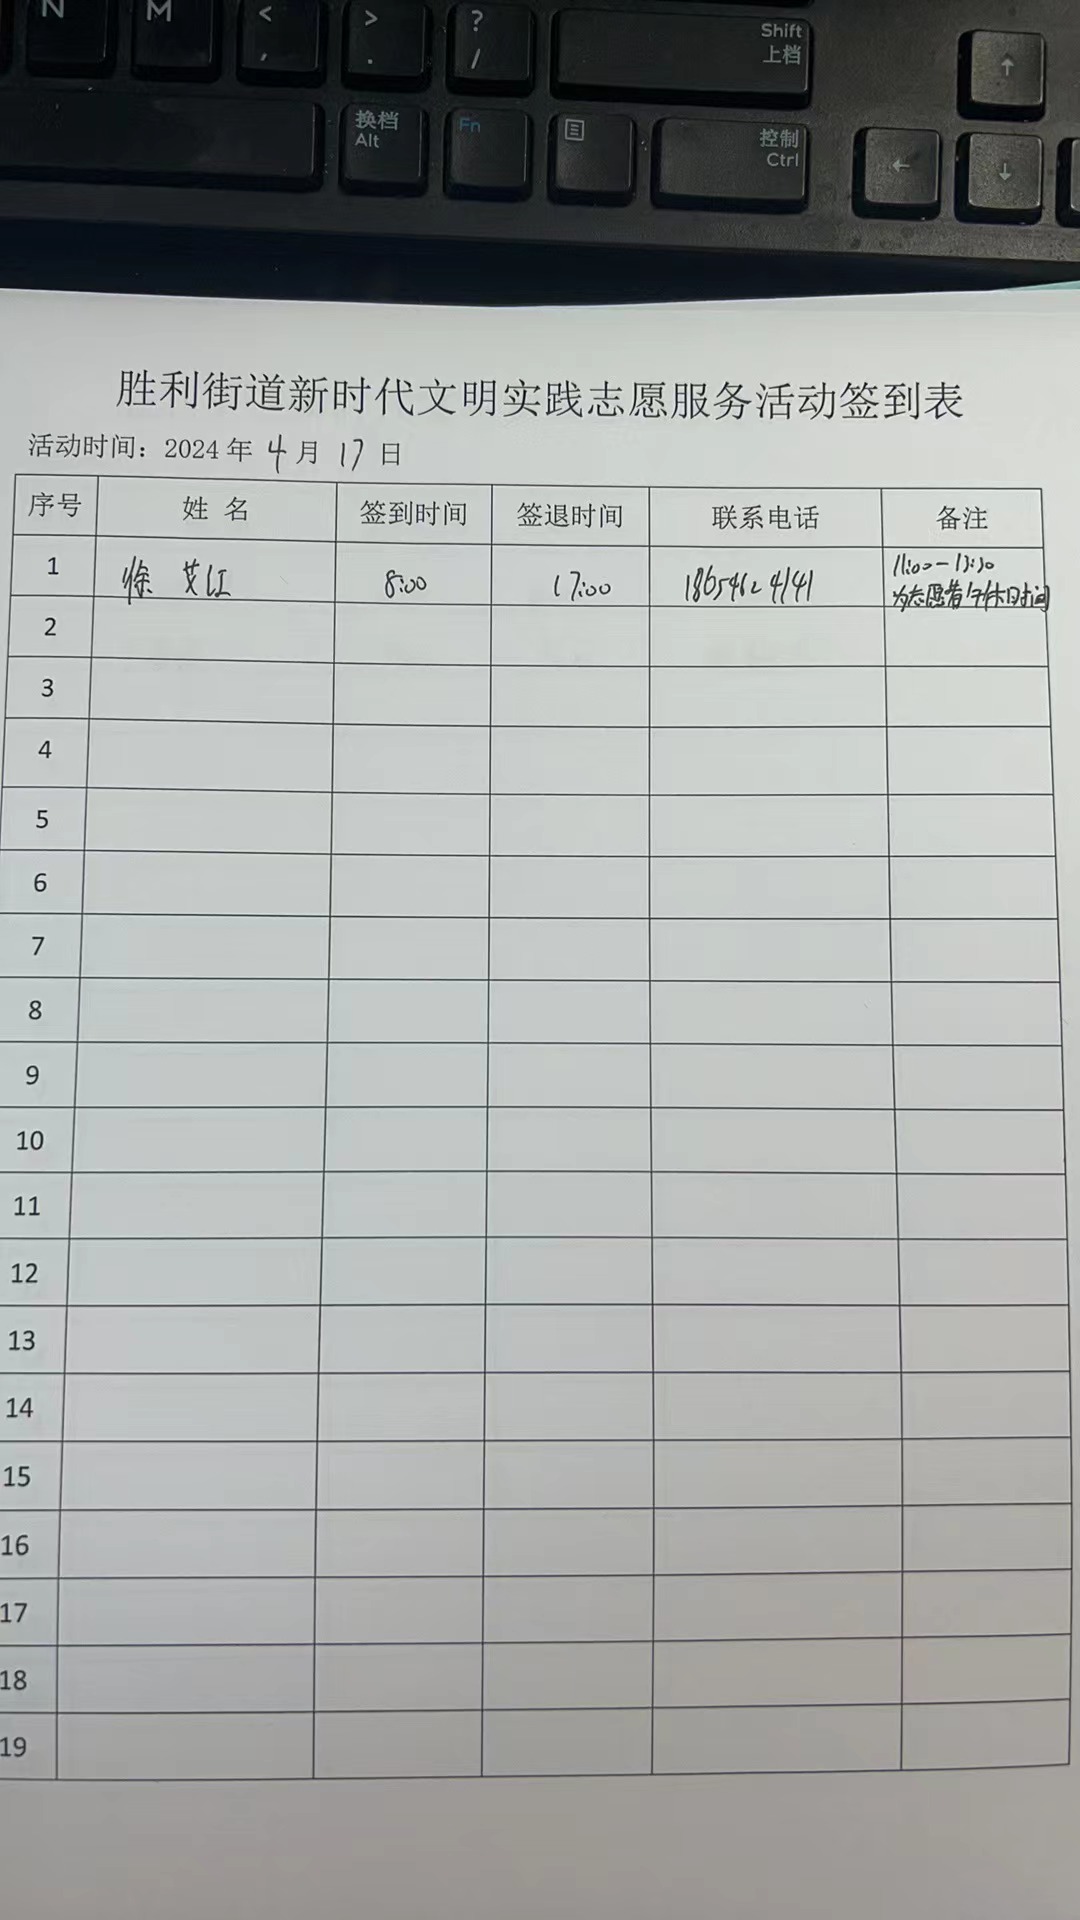 N M < , > . ? / Shift 上档 ↑
换档 Alt Fn 控制 Ctrl ← ↓
胜利街道新时代文明实践志愿服务活动签到表
活动时间：2024 年 4 月 17 日
序号 姓 名 签到时间 签退时间 联系电话 备注
1 徐 艾江 8:00 17:00 18654624141 11:00-13:30
为志愿者午休时间
2
3
4
5
6
7
8
9
10
11
12
13
14
15
16
17
18
19